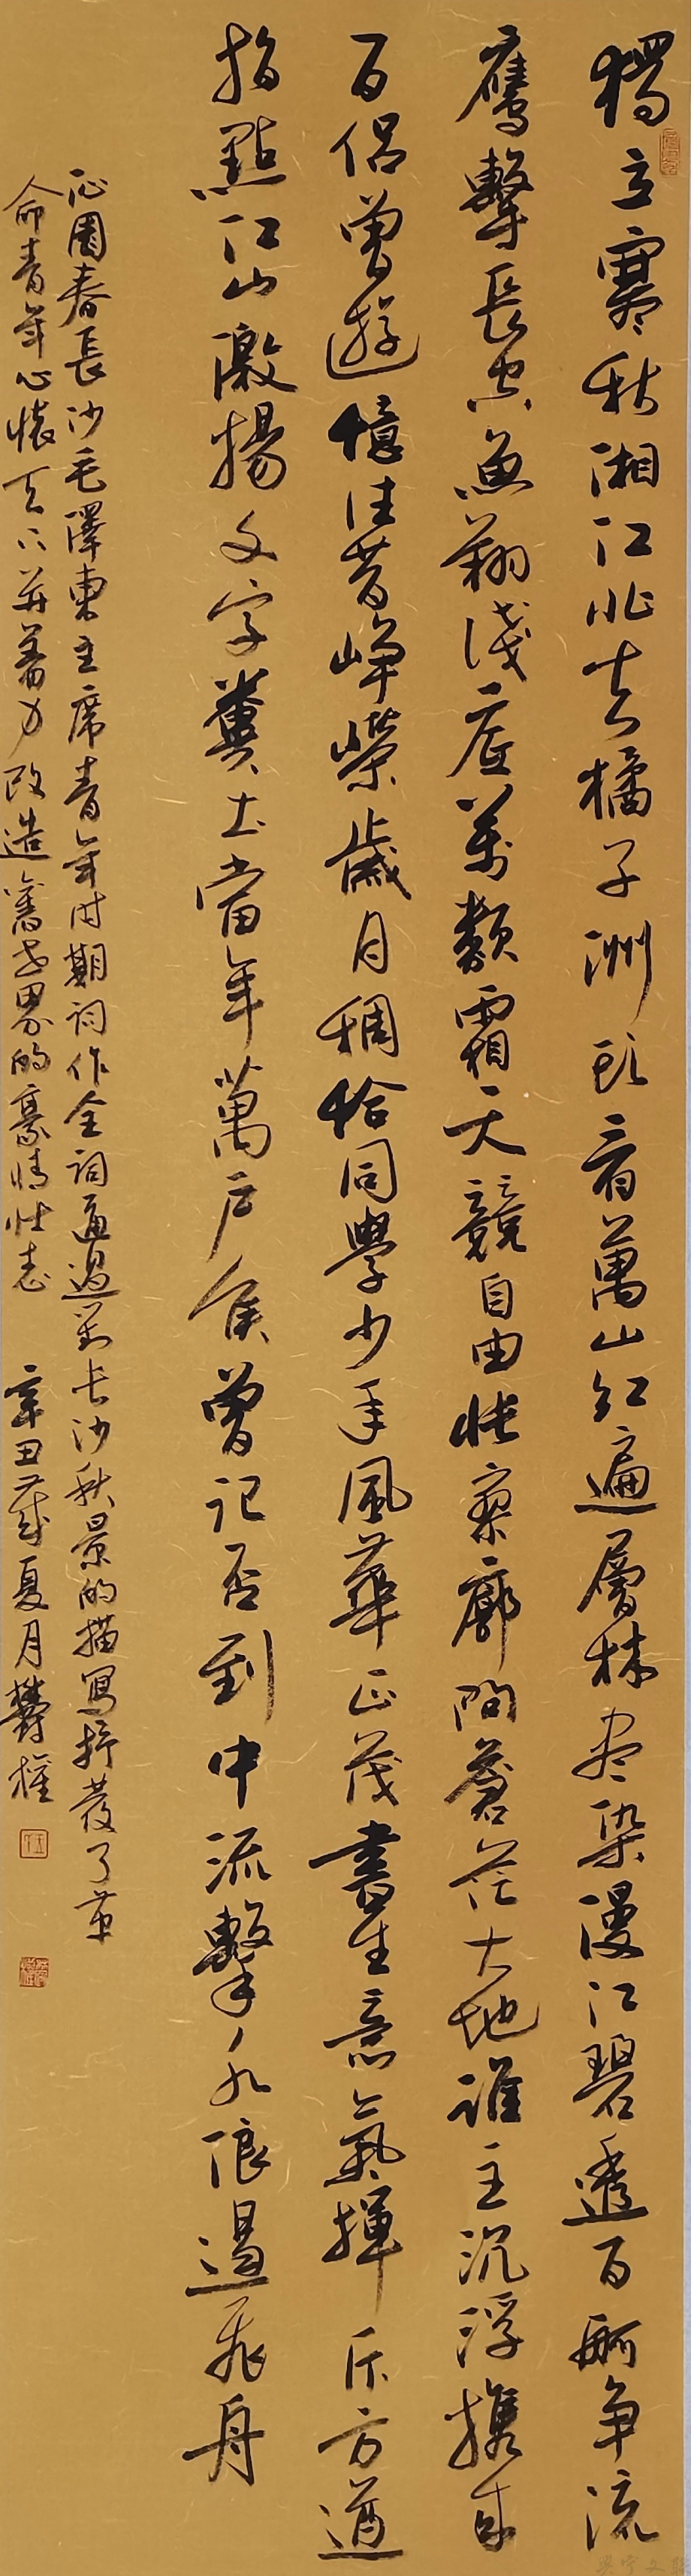 獨立寒秋湘江北去橘子洲头看萬山红遍層林尽染漫江碧透百舸争流
鹰擊長空魚翔浅底萬類霜天競自由悵寥廓問蒼茫大地誰主沉浮攜来
百侣曾遊憶往昔崢嶸歲月稠恰同學少年風華正茂書生意氣揮斥方遒
指點江山激揚文字糞土當年萬户侯曾記否到中流擊水浪遏飛舟
沁園春長沙毛澤東主席青年时期詞作全詞通過对长沙秋景的描寫抒發了革
命青年心懷天下并着力改造舊世界的豪情壮志 辛丑歲夏月 權